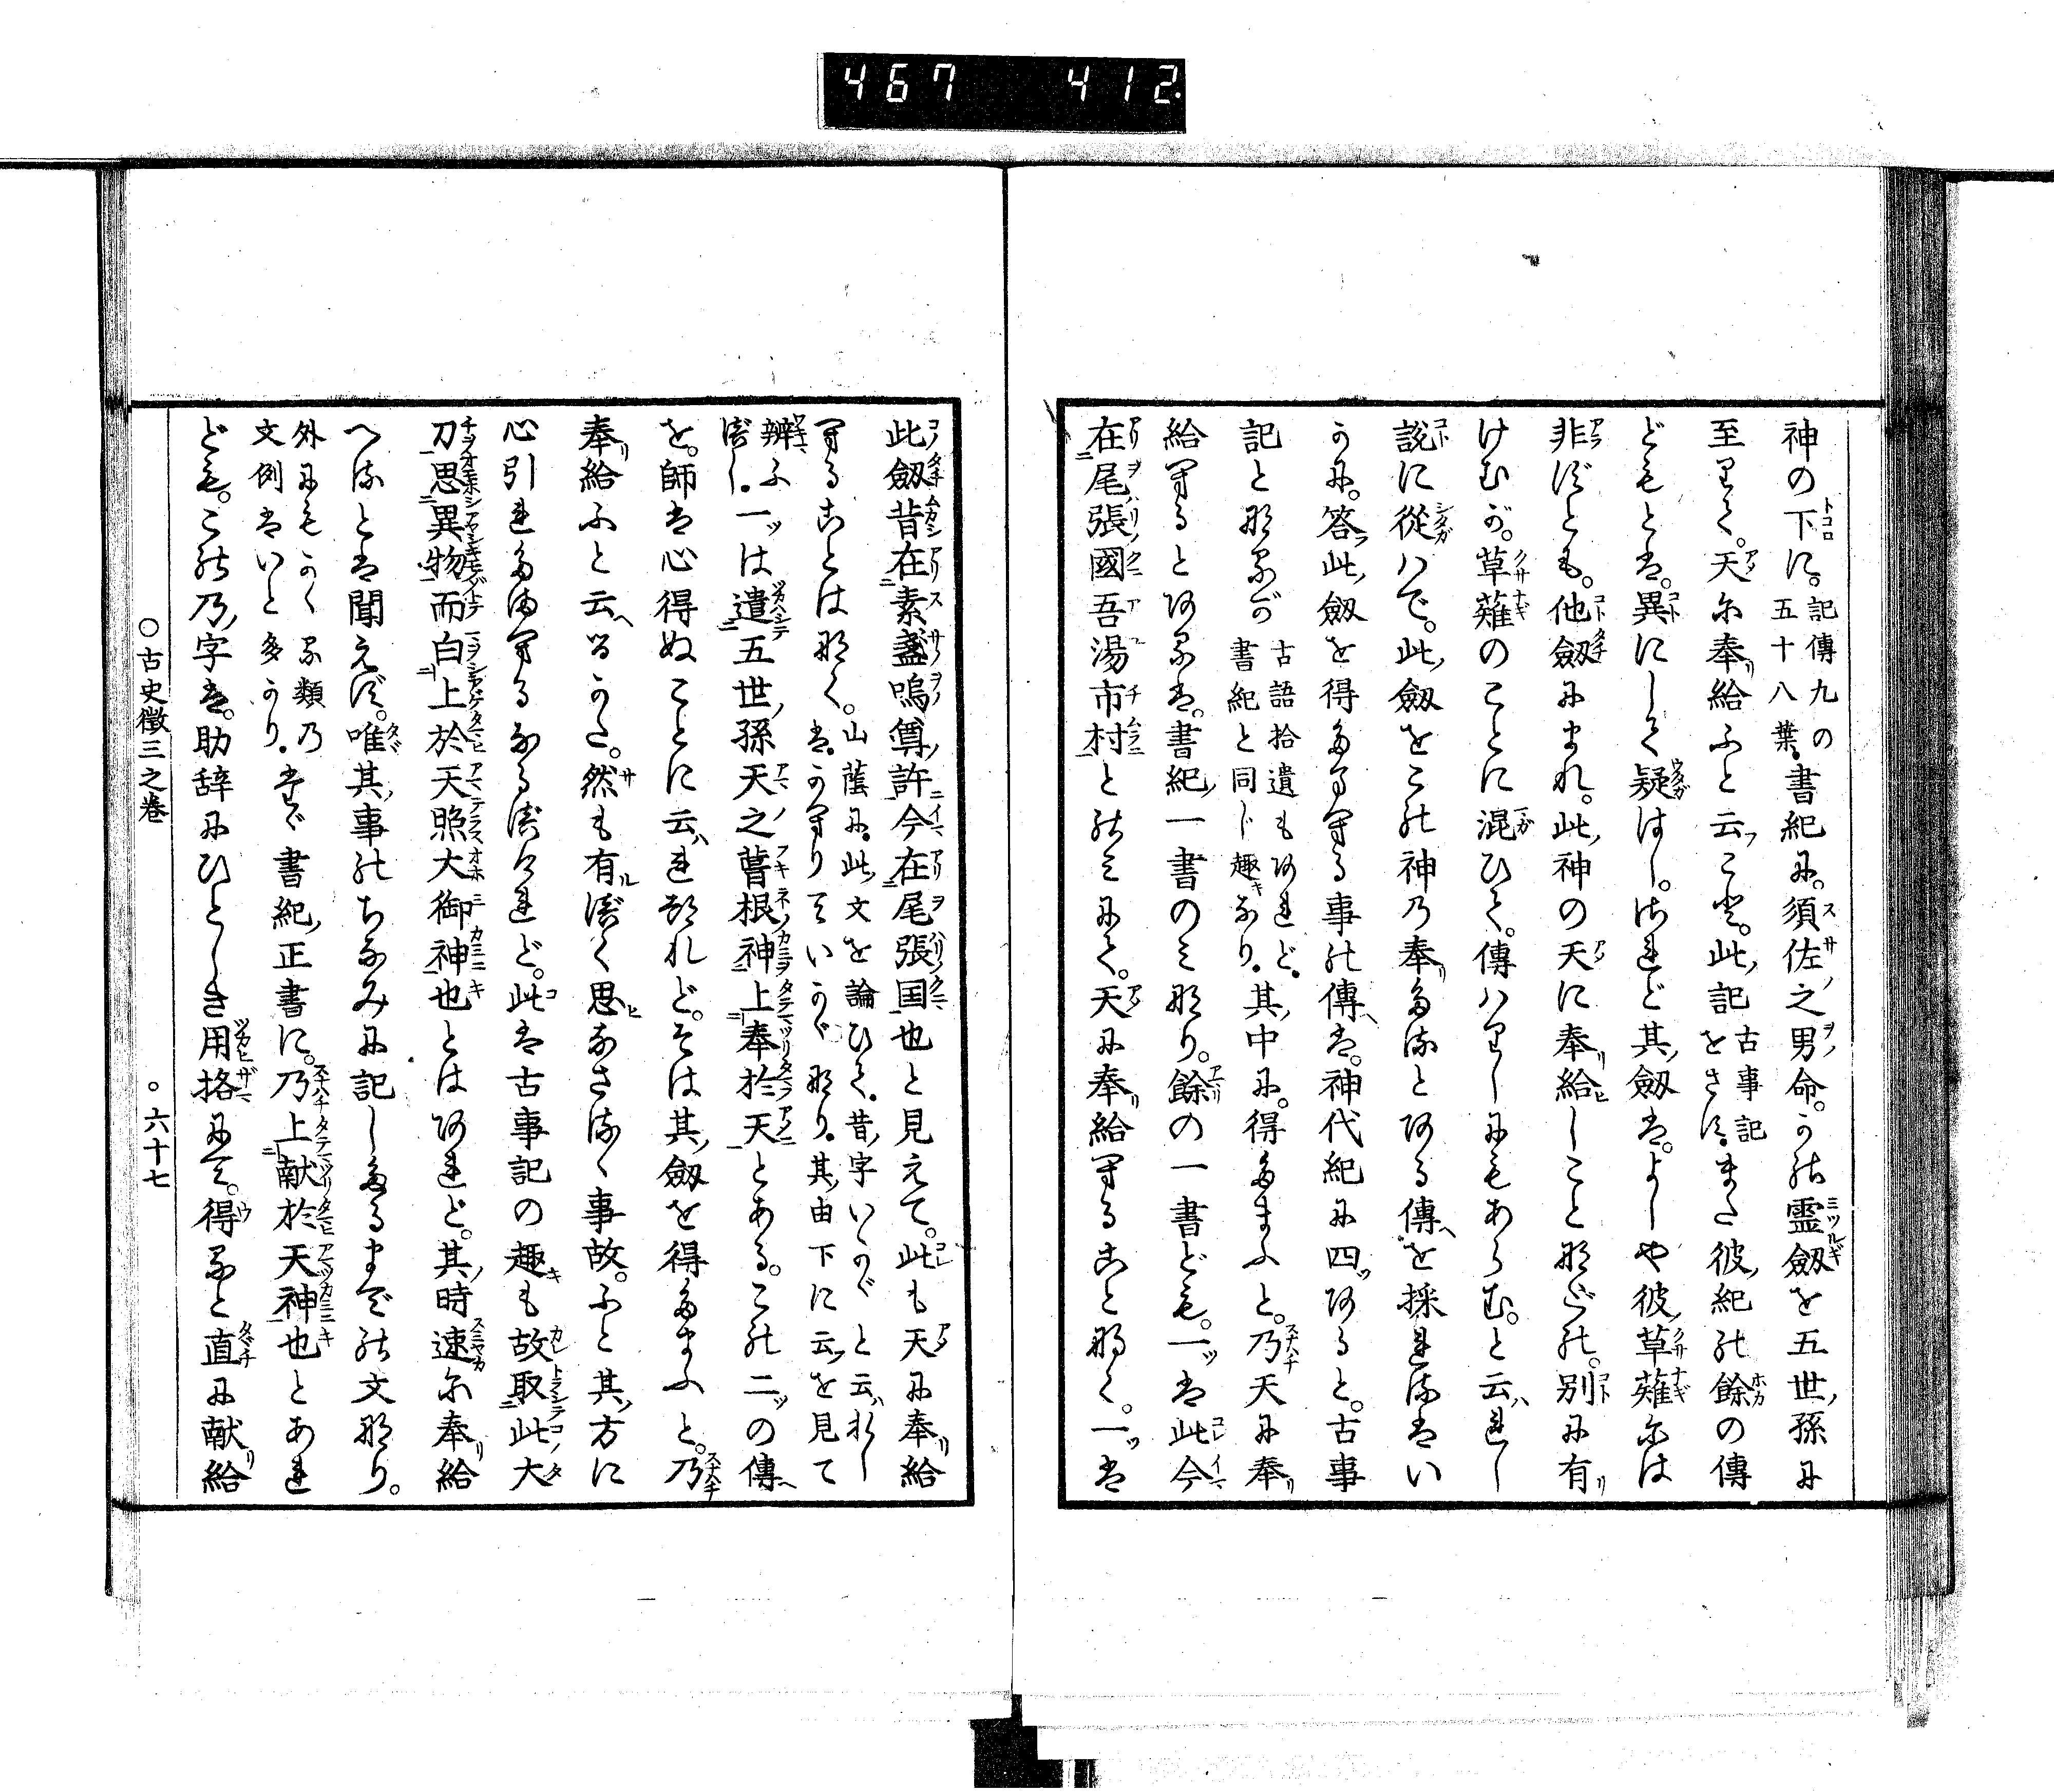 467 412.
神の下に。記傳九の五十八葉。書紀に。須佐之男命。かの霊劔を五世孫に
至りて。天に奉給ふと云こと。此記古事記をさす。また彼紀の餘の傳
どもとは。異にして疑はし。されど其劔は。よしや彼草薙には
非ずとも。他劔にまれ。此神の天に奉給しこと有なむ。別に有
けむが。草薙のことに混ひて。傳はりしにもあらむ。と云れし
説に從はで。此劔をこの神の奉たまへりとある傳を採れるはい
かに。答此劔を得たまへる事の傳は。神代紀に四ッあると。古事
記となるが古語拾遺もあれど。書紀と同じ趣なり。其中に。得たまふと。乃天に奉
給へるとあるは。書紀一書のみなり。餘の一書ども。一ッは此今
在尾張國吾湯市村とのみにて。天に奉給へること無く。一ッは
此劔昔在素盞嗚尊許今在尾張国也と見えて。此も天に奉給
へることは無く。山蔭に。此文を論ひて。昔字いかゞと云れしは。かへりていかゞなり。其由下に云を見て
辨ふべし。一ッは遣五世孫天之葺根神上奉於天とある。この二ッの傳
を。師は心得ぬことに云れつれど。そは其劔を得たまふと。乃
奉給ふと云るかた。然も有べく思なさるゝ事故。ふと其方に
心引れたまへるなるべけれど。此は古事記の趣も故取此大
刀思異物而白上於天照大御神也とはあれど。其時速に奉給
へるとは聞えず。唯其事のちなみに記したるまでの文なり。
外にもかくる類の文例はいと多かり。まづ書紀正書に。乃上献於天神也とあれ
ども。この乃字は。助辞にひとしき用格にて。得ると直に献給
○古史徴三之巻 ○六十七